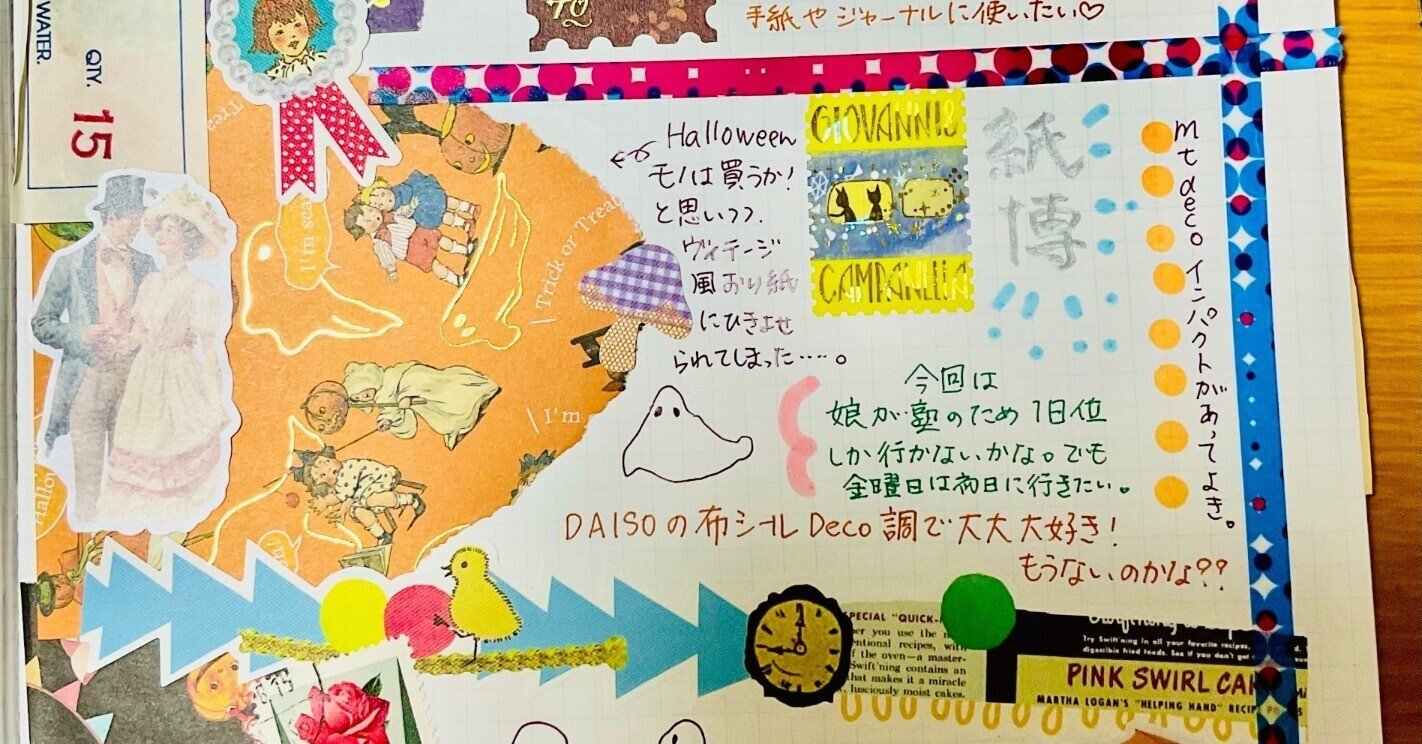 WATER.
QTY.
15
手紙やジャーナルに使いたい♡
Halloween
モノは買うか!
と思いつつ.
ヴィテージ
風おり紙
にひきよせ
られてしまった・・・・。
GIOVANNI &
CAMPANELLA
紙博
mt deco インパクトがあってよき。
Trick or Treat
I'm
今回は
娘が塾のため1日位
しか行かないかな。でも
金曜日は初日に行きたい。
DAISOの布シールDeco調で大大大好き!
もうないのかな??
PECIAL "QUICK-
er you use the
entional recipes, with
f the oven—a master-
Swift'ning contains an
hat makes it a miracle
luscious­ly moist cakes.
Try Swift'ning in all your favorite recipes,
digestible fried foods. See if you don't
PINK SWIRL CAK
MARTHA LOGAN'S "HELPING HAND" RECIPE